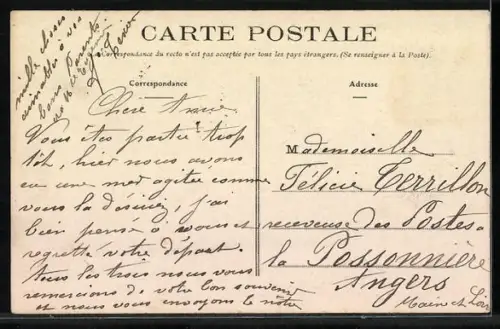 CARTE POSTALE
La Correspondance du recto n'est pas acceptée par tous les pays étrangers. (Se renseigner à la Poste).
mille choses
aimables à vos
bons parents
Correspondance
Chère Amie
Vous êtes partie trop
tôt, hier nous avons
eu une mer agitée comme
vous la désirez, j'ai
bien pensé à vous et
regretté votre départ.
tous les trois nous vous
remercions de votre bon souvenir
et nous vous envoyons le nôtre
Adresse
Mademoiselle
Félicie Terrillon
receveuse des Postes à
la Possonnière
Angers
Maine et Loire